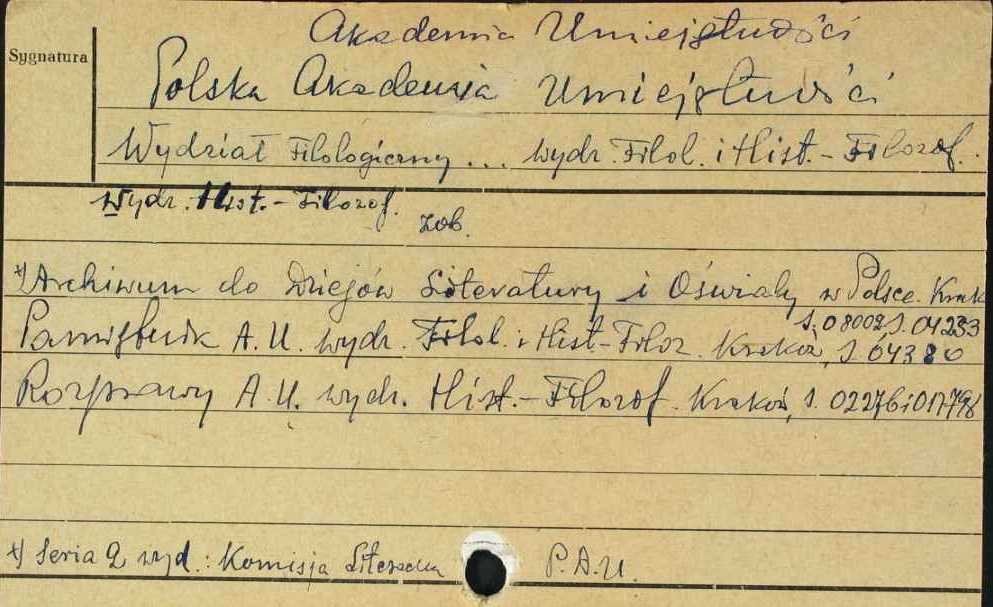 Akademia Umiejętności
Sygnatura
Polska Akademia Umiejętności
Wydział Filologiczny... wydz. Filol. i Hist.-Filozof.
Wydz. Hist.-Filozof.
zob.
*) Archiwum do Dziejów Literatury i Oświaty w Polsce. Krak
S. 08002 S. 04233
Pamiętnik A.U. wydz. Filol. i Hist-Filoz. Kraków, S 64380
Rozprawy A.U. wydz. Hist.-Filozof. Kraków, S. 02276 i 017798
*) Seria 2 wyd.: Komisja Literacka P.A.U.